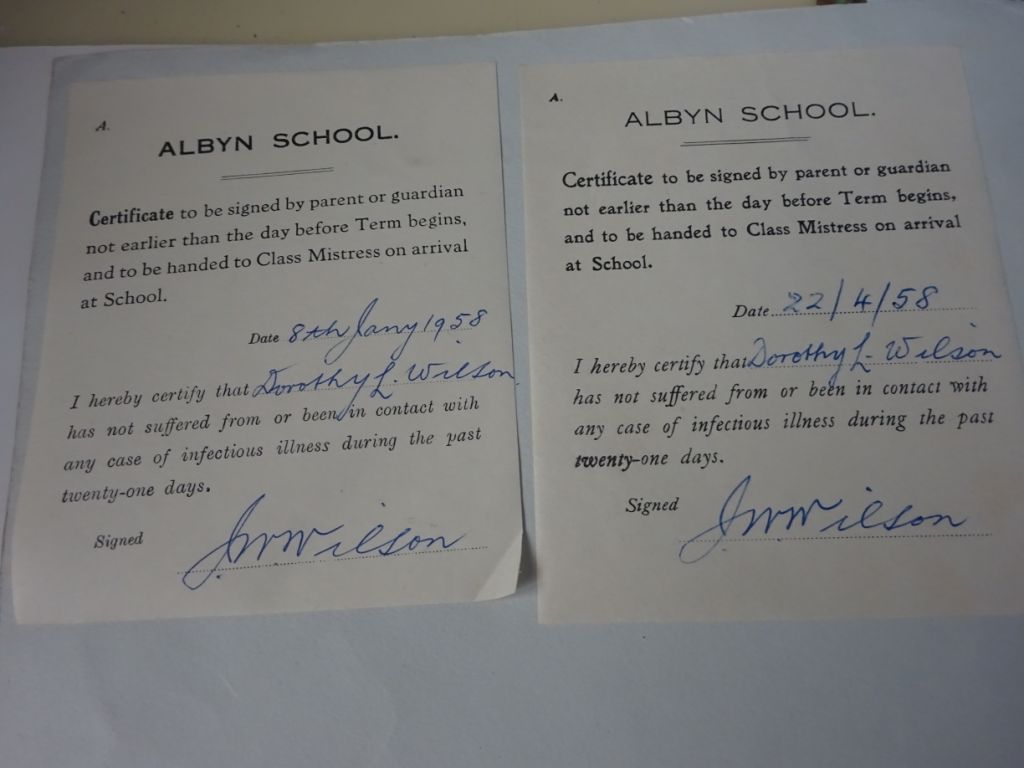 A.
ALBYN SCHOOL.
Certificate to be signed by parent or guardian
not earlier than the day before Term begins,
and to be handed to Class Mistress on arrival
at School.
Date 8th Jany 1958
I hereby certify that Dorothy L. Wilson
has not suffered from or been in contact with
any case of infectious illness during the past
twenty-one days.
Signed J.W.Wilson
A.
ALBYN SCHOOL.
Certificate to be signed by parent or guardian
not earlier than the day before Term begins,
and to be handed to Class Mistress on arrival
at School.
Date 22/4/58
I hereby certify that Dorothy L. Wilson
has not suffered from or been in contact with
any case of infectious illness during the past
twenty-one days.
Signed J.W.Wilson